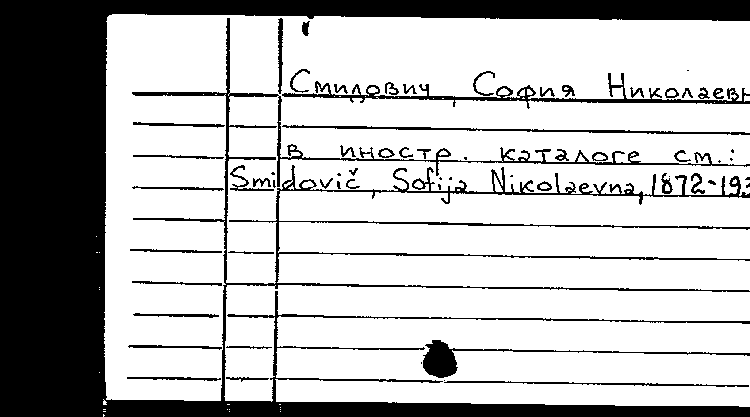 Смидович, София Николаевн
в иностр. каталоге см.:
Smidovič, Sofija Nikolaevna, 1872-193